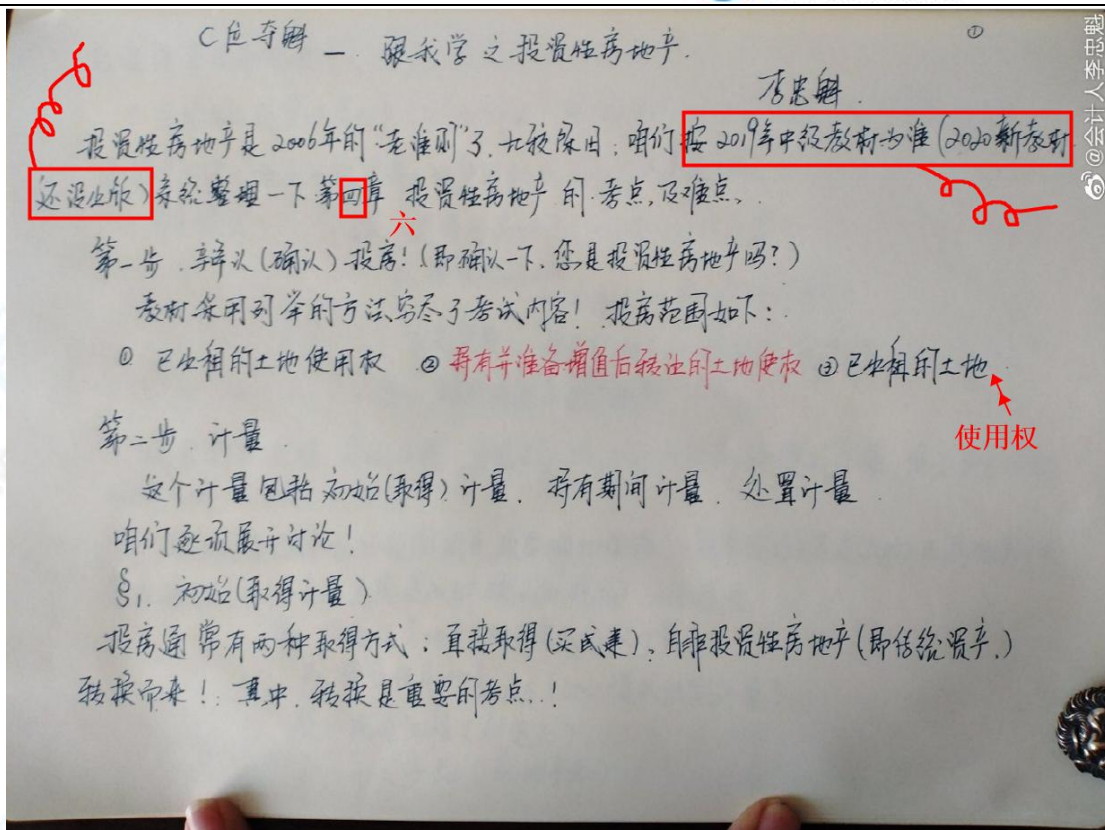 C位夺魁 — 跟我学之投资性房地产. ①
李忠魁.
投资性房地产是2006年的“老准则”了,比较陈旧,咱们按2019年中级教材为准(2020新教材
还没出版)系统整理一下第四章 投资性房地产的考点及难点.
六
第一步 辛辛认(确认)投房!(即确认一下,您是投资性房地产吗?)
教材采用列举的方法写尽了考试内容! 投房范围如下:
① 已出租的土地使用权 ② 持有并准备增值后转让的土地使权 ③ 已出租的土地
使用权
第二步 计量.
这个计量包括初始(取得)计量, 持有期间计量, 处置计量.
咱们逐项展开讨论!
§1. 初始(取得计量)
投房通常有两种取得方式:直接取得(买或建)、自非投资性房地产(即传统资产.)
转换而来! 其中,转换是重要的考点..!
@会计人李忠魁